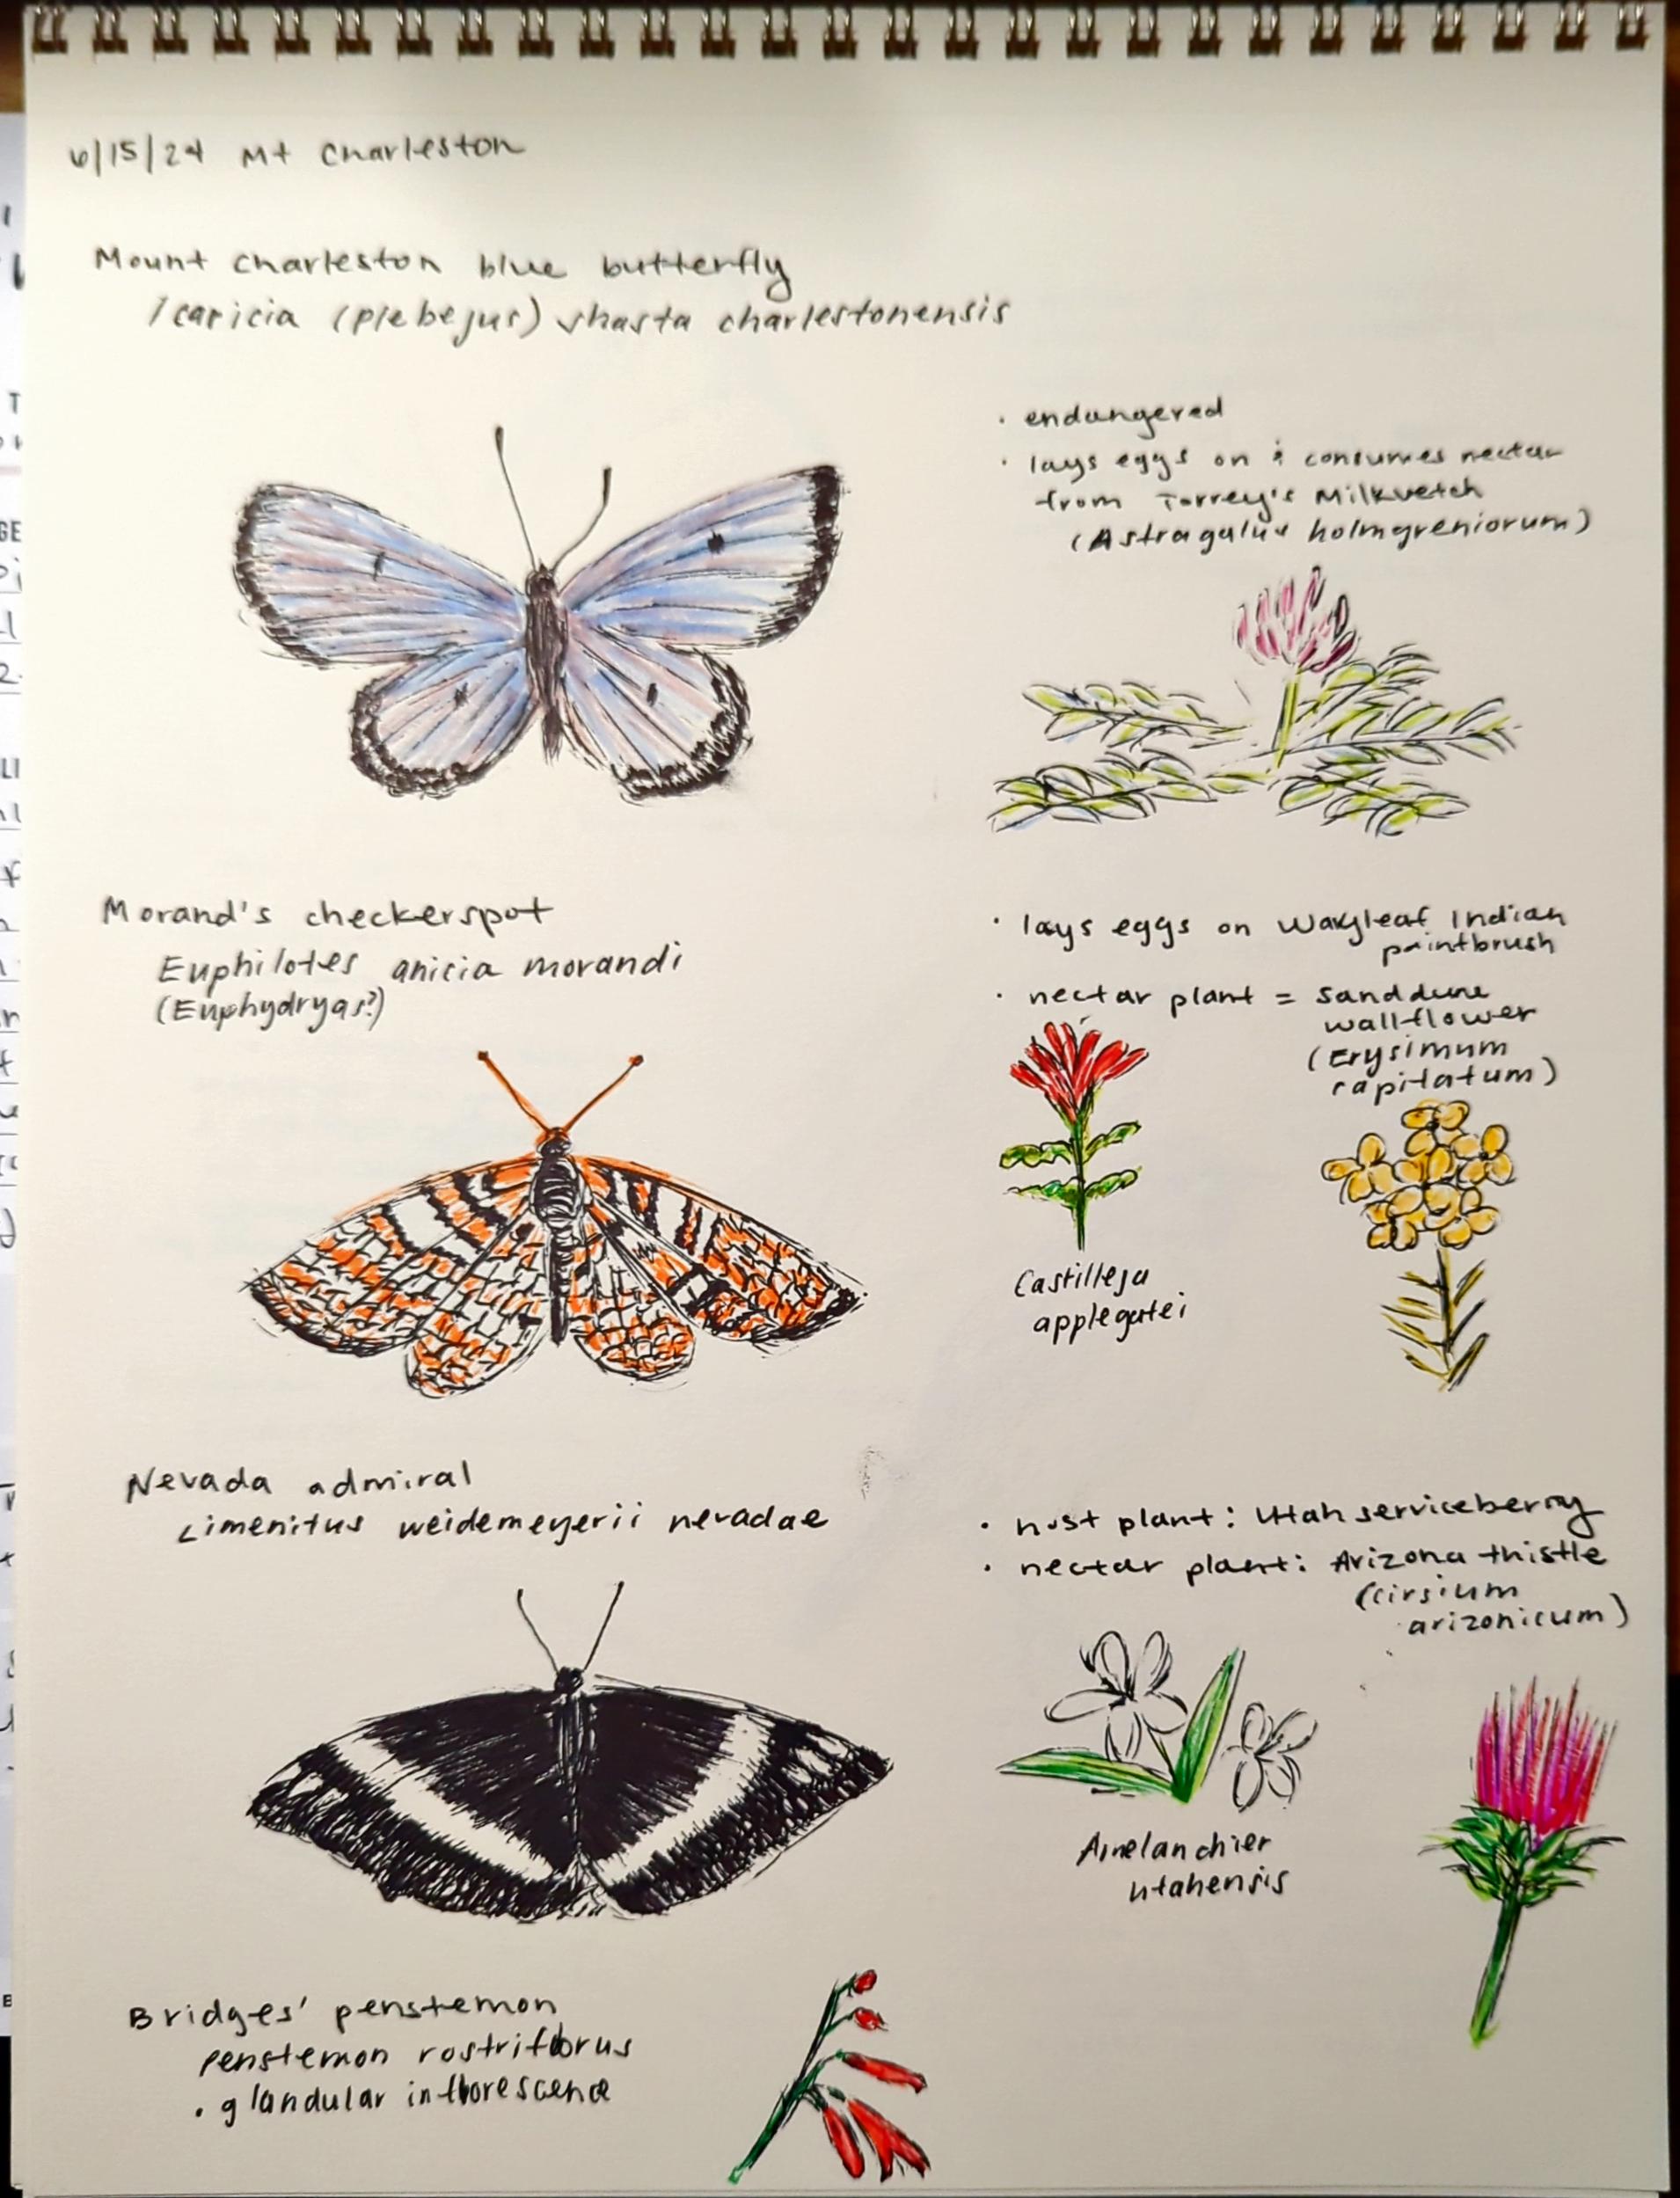 6/15/24 Mt Charleston
Mount Charleston blue butterfly
Icaricia (plebejus) shasta charlestonensis
· endangered
· lays eggs on & consumes nectar
from Torrey's Milkvetch
(Astragalus holmgreniorum)
Morand's checkerspot
Euphilotes anicia morandi
(Euphydryas?)
· lays eggs on Wavyleaf Indian
paintbrush
· nectar plant = sanddune
wallflower
(Erysimum
capitatum)
Castilleja
applegatei
Nevada admiral
Limenitus weidemeyerii nevadae
· host plant: Utah serviceberry
· nectar plant: Arizona thistle
(cirsium
arizonicum)
Amelanchier
utahensis
Bridges' penstemon
penstemon rostriflorus
· glandular inflorescence